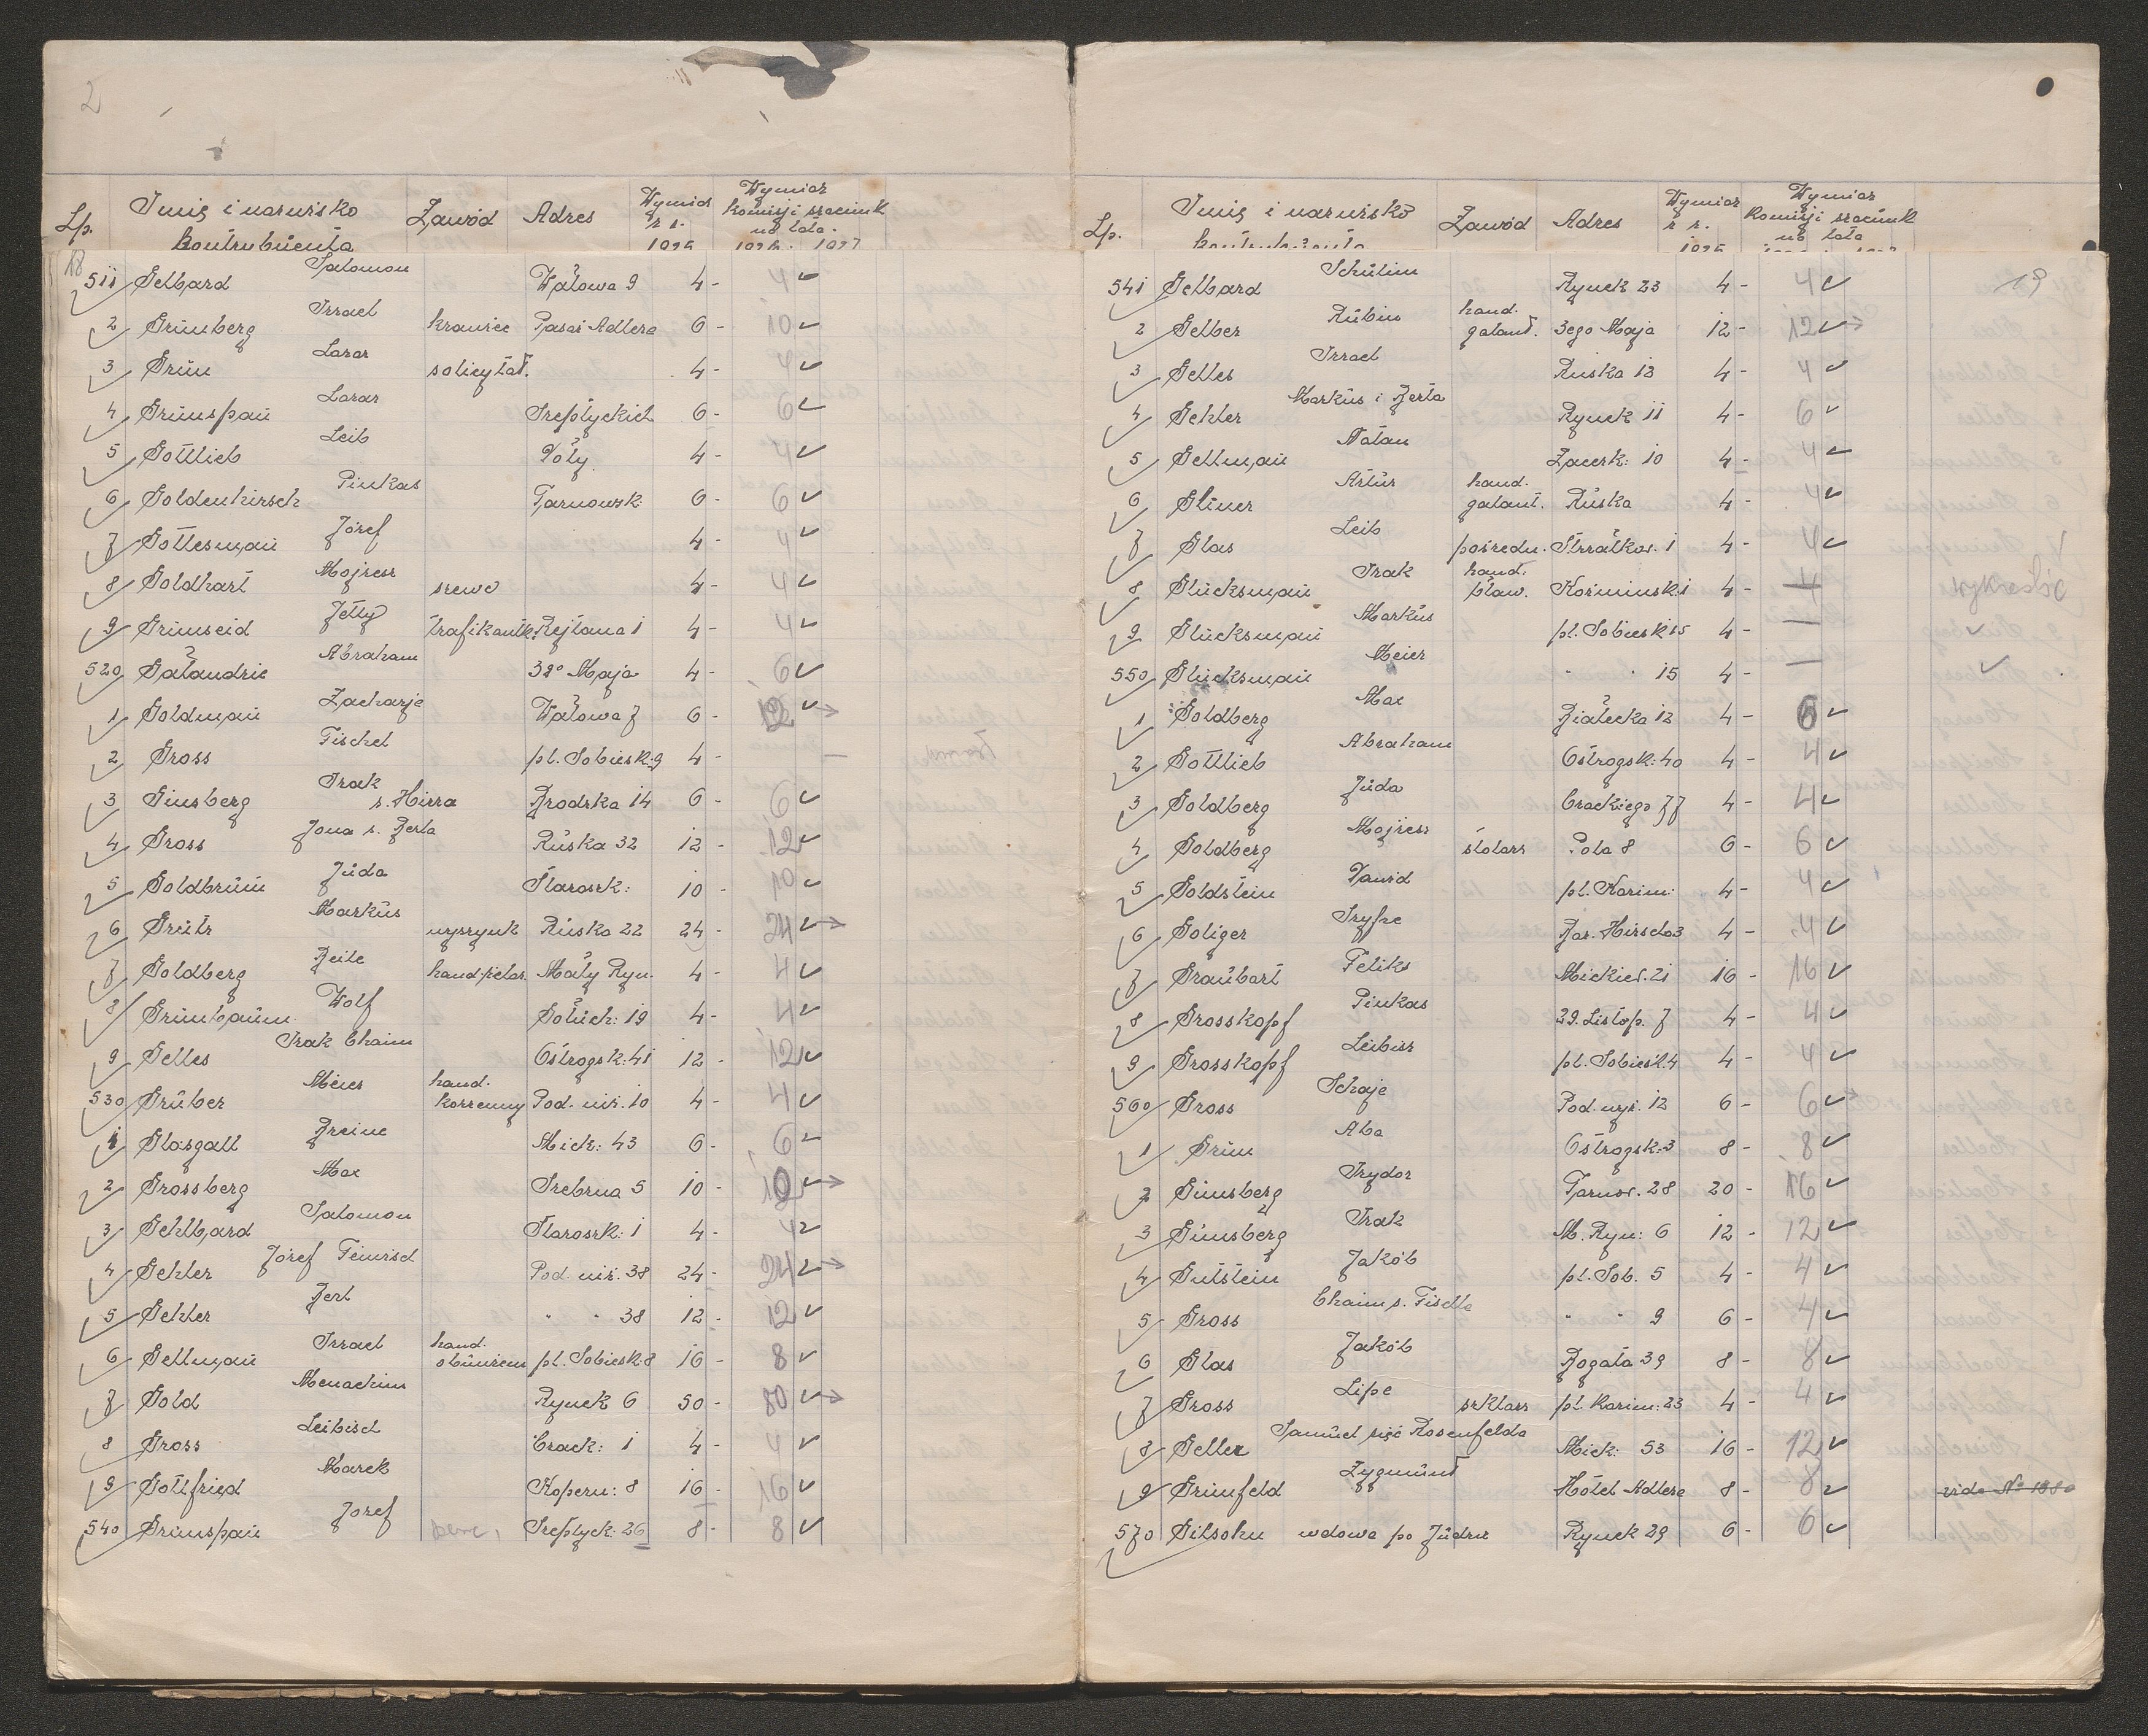 2
Lp. Imię i nazwisko kontrybuenta Zawód Adres Wymiar z r. 1925 Wymiar komisji szacunk na lata 1926. 1927
18
511 Gelbard Salomon Wałowa 9 4- 4
2 Grünberg Izrael krawiec Pasaż Adlera 6- 10
3 Grün Lazar solicytat. 4- 4
4 Grünspan Lazar Szeptyckich 6- 6
5 Gottlieb Leib Doły 4- 4
6 Goldenhirsch Pinkas Tarnowsk: 6- 6
7 Gottesman Józef 4- 4
8 Goldhart Mojżesz szewc 4- 4
9 Grünseid Jetty trafikantk. Rejtana 1 4- 4
520 Gałandzie Abraham 3go Maja 4- 6
1 Goldman Zacharje Wałowa 7 6- 12
2 Gross Fischel pl. Sobiesk: 9 4- —
3 Ginsberg Izak z. Hirza Brodzka 14 6- 6
4 Gross Jona z. Berla Ruska 32 12- 12
5 Goldbrunn Juda Starozk: 10- 10
6 Grütz Markus wyszynk Ruska 22 24- 24
7 Goldberg Beile hand/żelaz. Mały Ryn. 4- 4
8 Grünbaum Wolf Gołuch: 19 4- 4
9 Gelles Izak Chaim Ostrogsk: 41 12- 12
530 Grüber Meier hand. korzenny Pod. niż. 10 4- 4
1 Glasgall Breine Mick: 43 6- 6
2 Grossberg Max Srebrna 5 10- 10
3 Gehlbard Salomon Starozk: 1 4- 4
4 Gehler Józef Feiwisch Pod. niż. 38 24- 24
5 Gehler Berl " " 38 12- 12
6 Gellman Izrael hand. obuwiem pl. Sobiesk: 8 16- 8
7 Gold Menachim Rynek 6 50- 80
8 Gross Leibisch Czack: 1 4- 4
9 Gottfried Marek Kopern: 8 16- 16
540 Grünspan Józef Szeptyck: 26 8- 8
Lp. Imię i nazwisko kontrybuenta Zawód Adres Wymiar z r. 1925 Wymiar komisji szacunk na lata
541 Gelbard Schulim Rynek 23 4- 4 19
2 Gelber Rubin hand. galant. 3ego Maja 12- 12
3 Gelles Izrael Ruska 13 4- 4
4 Gehler Markus i Berta Rynek 11 4- 6
5 Gellman Natan Zacerk: 10 4- 4
6 Gliner Artur hand. galant. Ruska 4- 4
7 Glas Leib pośredn. Strzałkow. 1 4- 4
8 Glücksman Izak hand. pław. Koźmińsk. 1 4- 4 wykreślić
9 Glücksman Markus pl. Sobiesk 15 4- —
550 Glücksman Meier " " 15 4- —
1 Goldberg Max Białecka 12 4- 6
2 Gottlieb Abraham Ostrogsk: 40 4- 4
3 Goldberg Juda Czackiego 77 4- 4
4 Goldberg Mojżesz stolarz Pola 8 6- 6
5 Goldstein Dawid pl. Kazim: 4- 4
6 Goliger Bar. Hirscha 3 4- 4
7 Graubart Feliks Mickiew. 21 16- 16
8 Grosskopf Pinkas 29. Listop. 7 4- 4
9 Grosskopf Leibisz pl. Sobiesk. 4 4- 4
560 Gross Schaje Pod. wyż. 12 6- 6
1 Grün Aba Ostrogsk: 3 8- 8
2 Ginsberg Izydor Tarnow. 28 20- 16
3 Ginsberg Izak M. Ryn: 6 12- 12
4 Gutstein Jakób pl. Sob. 5 4- 4
5 Gross Chaim s. Fischla " " 9 6- 4
6 Glas Jakób Bogata 39 8- 8
7 Gross Lipe szklarz pl. Kazim: 23 4- 4
8 Geller Samuel zięć Rosenfelda Mick: 53 16- 12
9 Grünfeld Zygmunt Hotel Adlera 8- 8 vide No 1880
570 Gilsohn wdowa po Judzie Rynek 29 6- 6